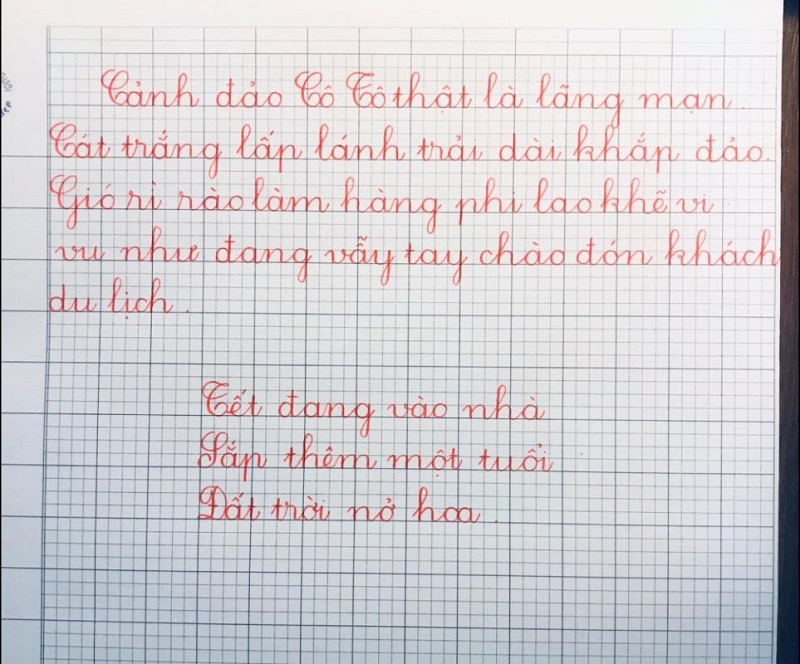 Cảnh đảo Cô Tô thật là lãng mạn.
Cát trắng lấp lánh trải dài khắp đảo.
Gió rì rào làm hàng phi lao khẽ vi
vu như đang vẫy tay chào đón khách
du lịch.
Tết đang vào nhà
Sắp thêm một tuổi
Đất trời nở hoa.